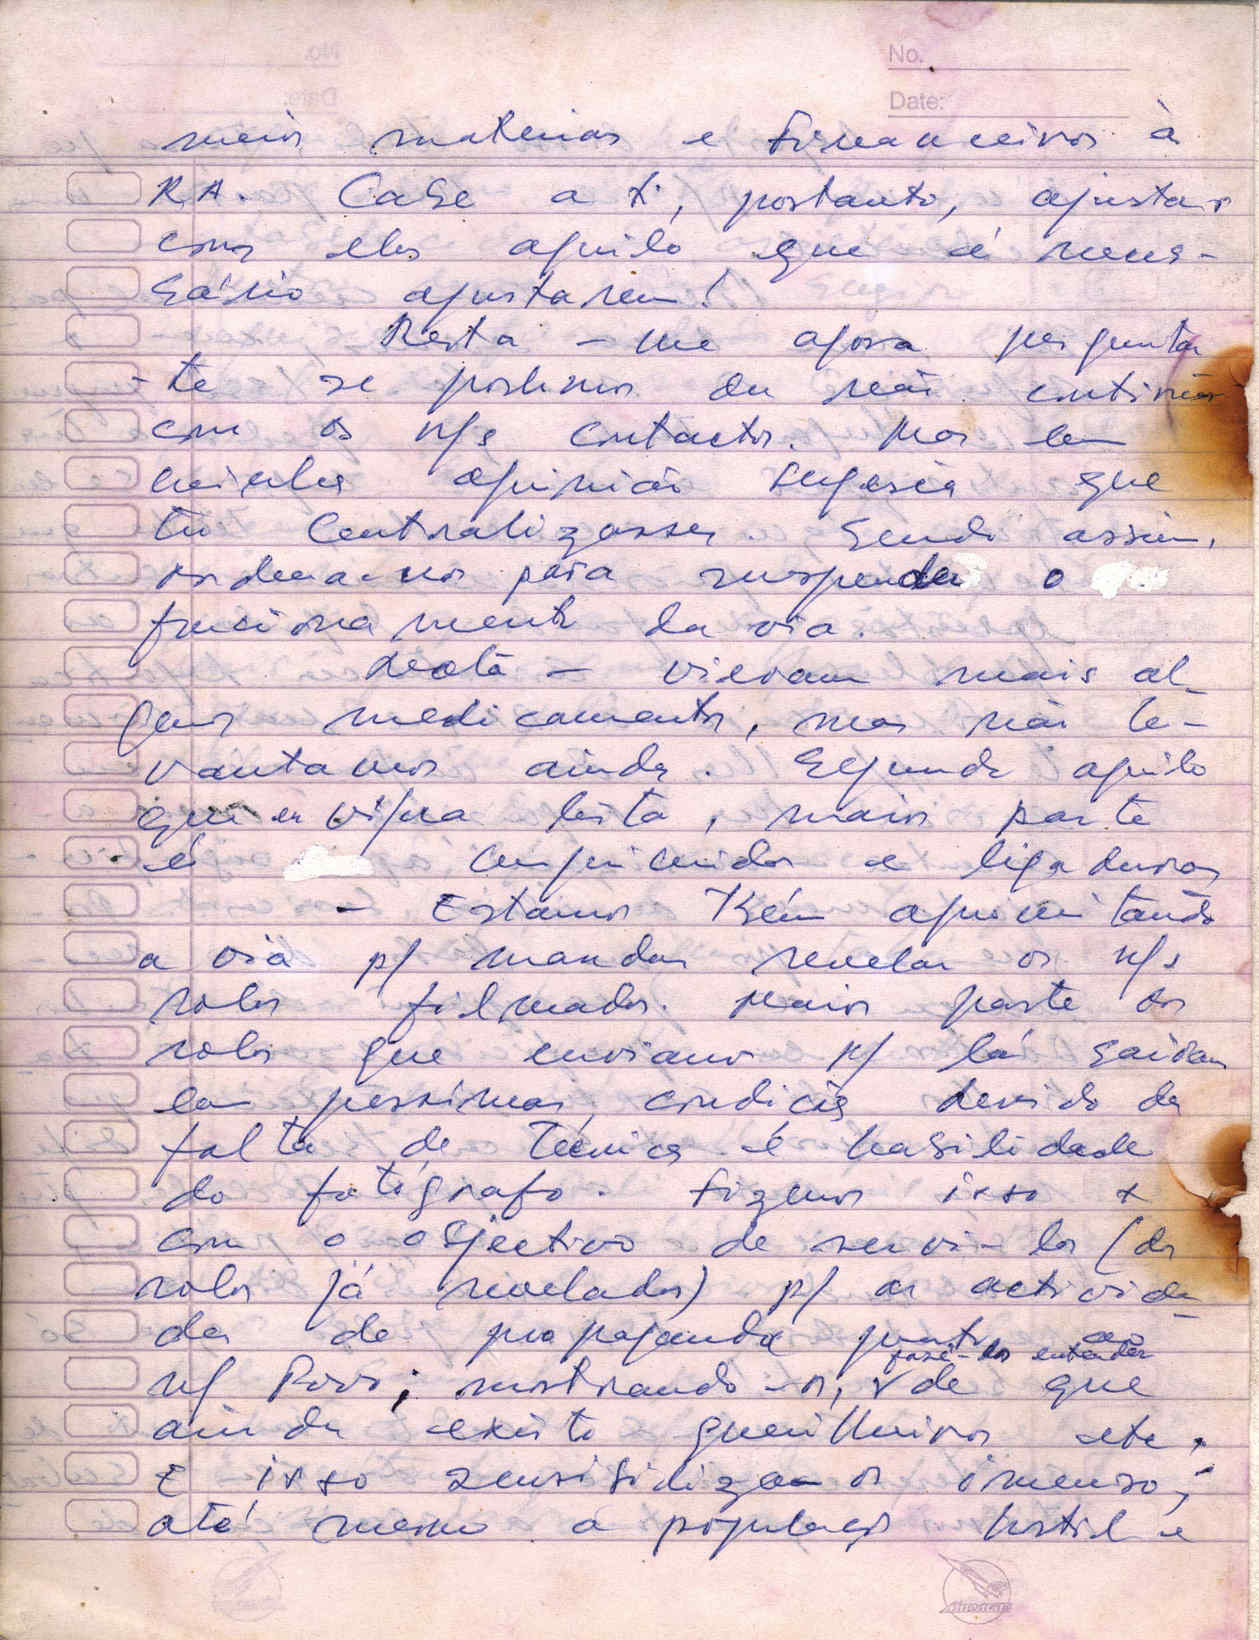 No.
Date:
meios materiais e financeiros à
R.A. Cabe a ti, portanto, ajustar
com eles aquilo que é neces-
sário ajustarem!
Resta-me agora perguntar
-te se podemos ou não continuar
com os n/s contactos. Mas em
minha opinião sugeria que
tu centralizasses. Sendo assim,
ordena-nos para suspender o
funcionamento da via.
Nota - Vieram mais al-
guns medicamentos, mas não le-
vantamos ainda. Segundo aquilo
que em lista, maior parte
é comprimidos e ligaduras
- Estamos tbém aproveitando
a via p/ mandar revelar os n/s
rolos filmados. Maior parte dos
rolos que enviamos p/ lá sairam
em pessimas condições devido da
falta de técnica e habilidade
do fotógrafo. Fizemos isso
com o objectivo de servi-los (os
rolos já revelados) p/ as activida-
des de propaganda junto ao
n/ Povo; mostrando-os, fazê-los entender de que
ainda existe guerrilheiros etc.
E isso sensibilizam os imenso;
até mesmo a população hostil e